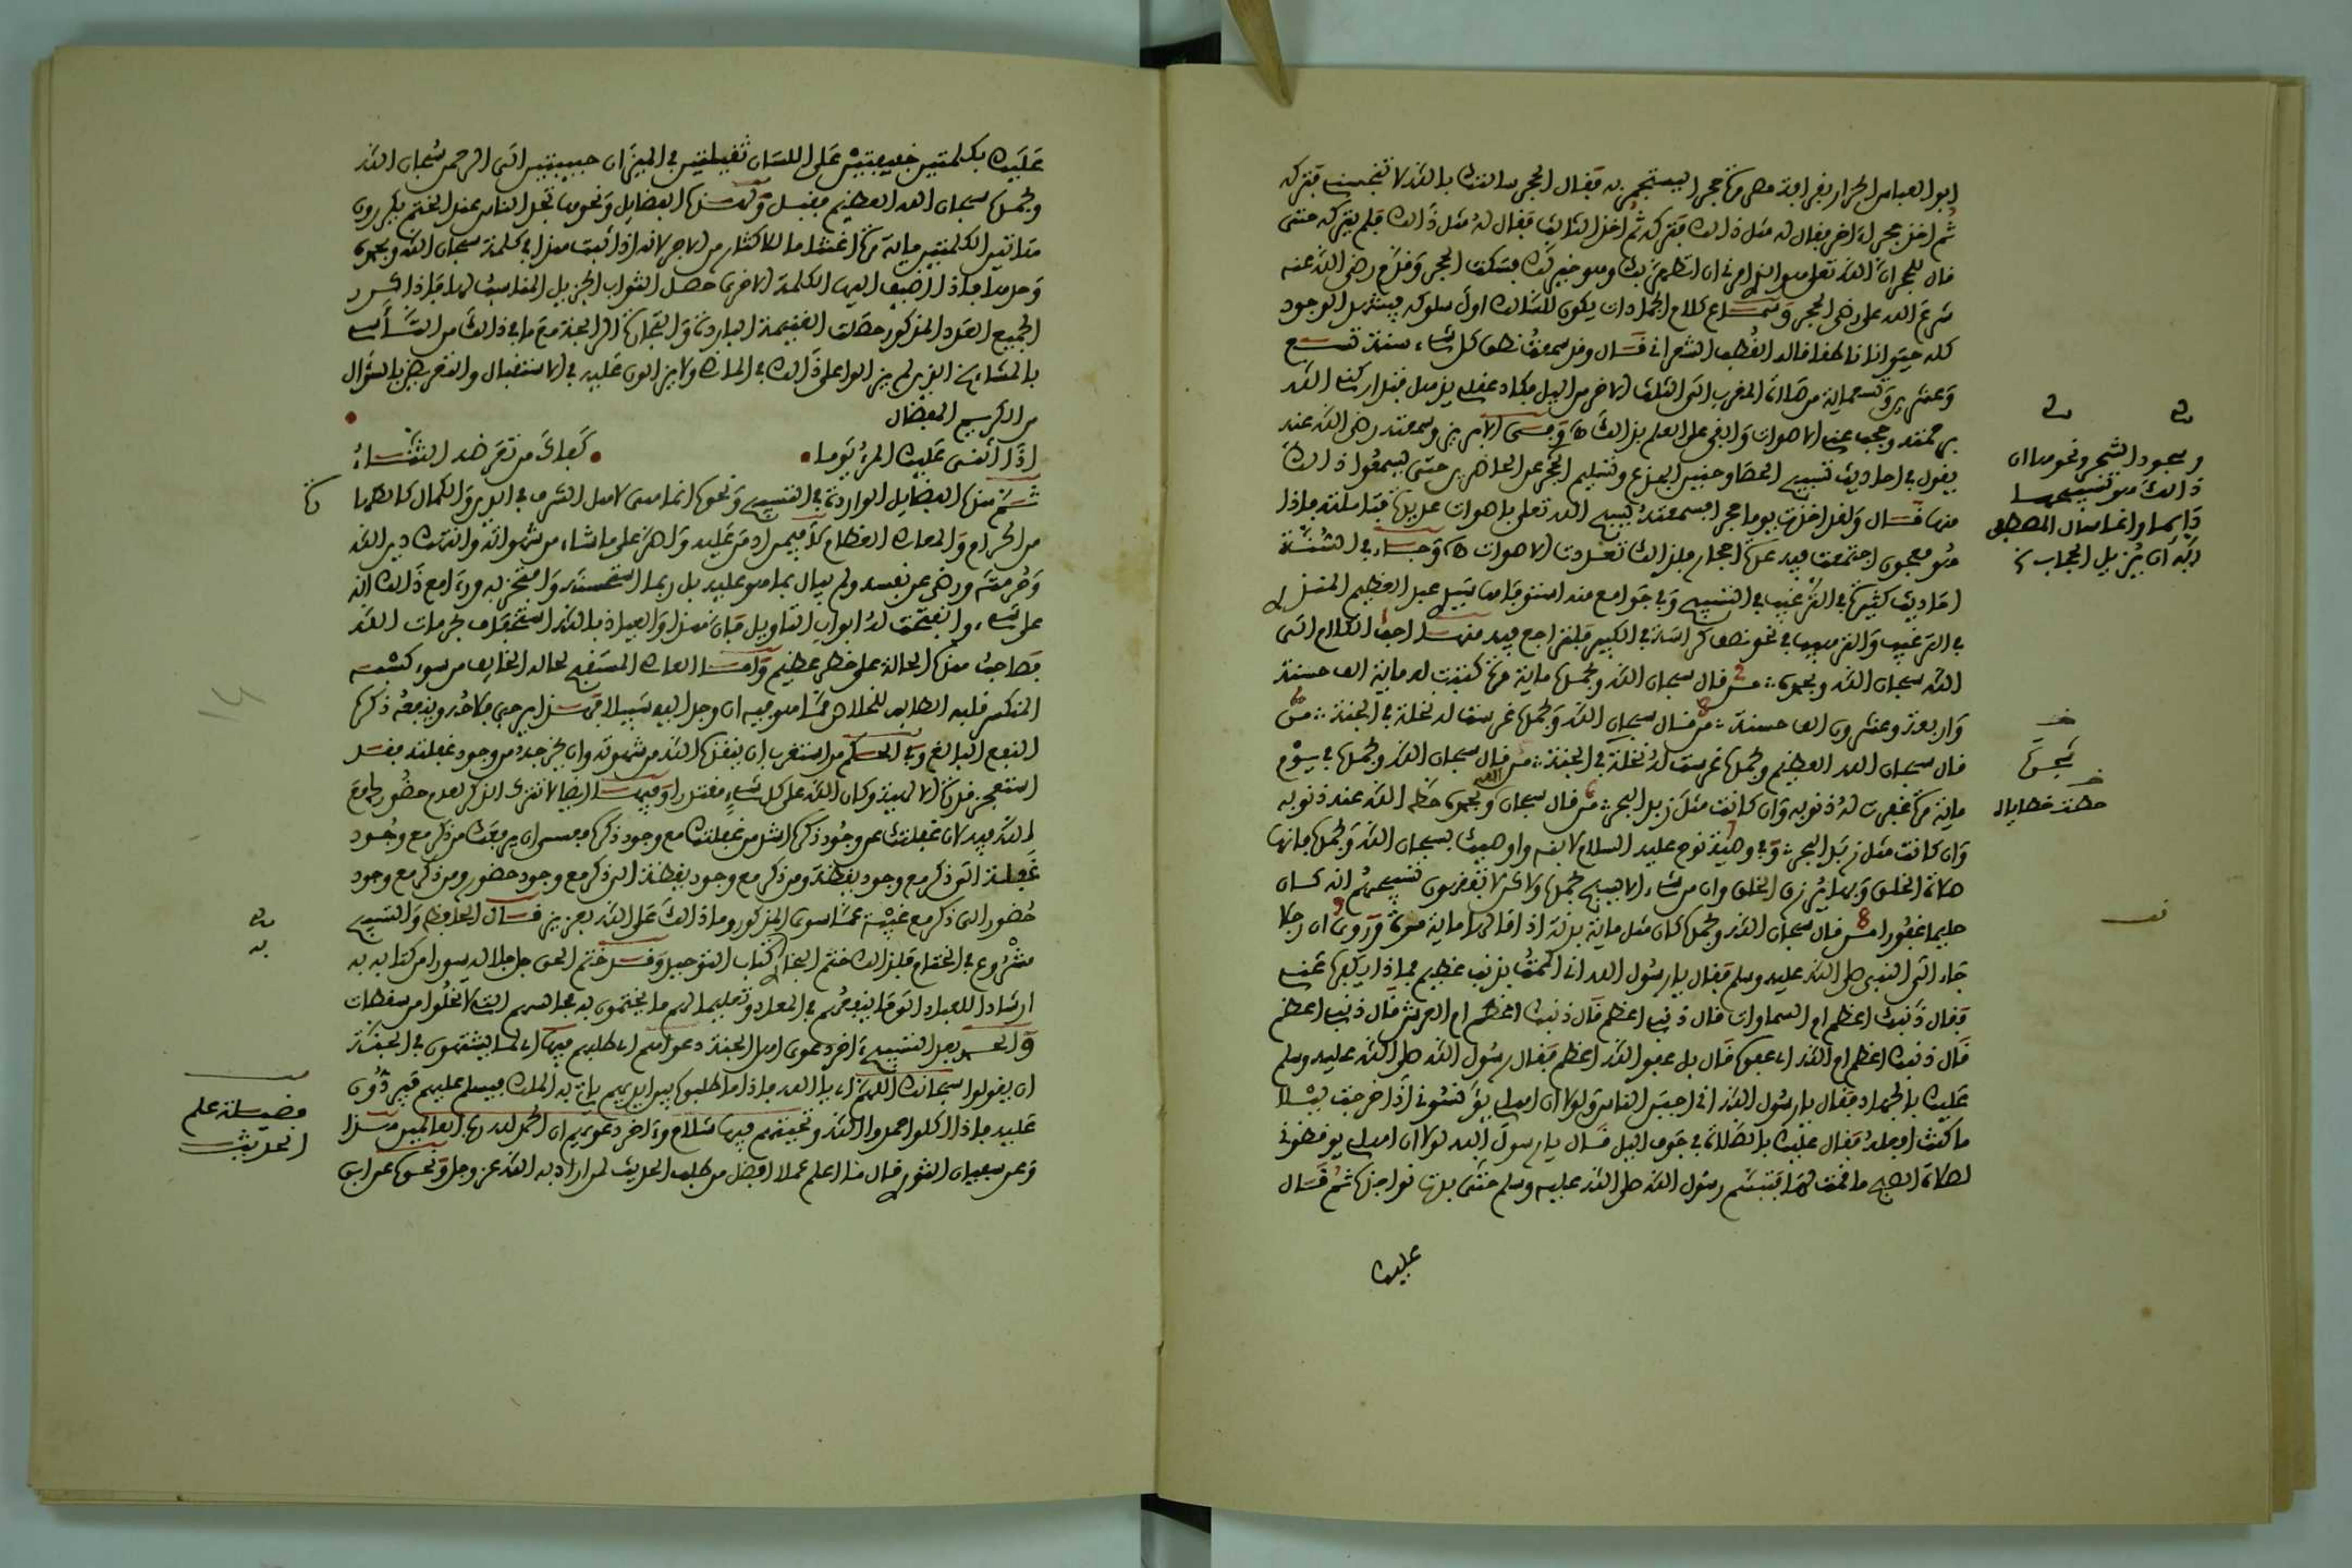 ابو العباس الحرار يقرا فيه مرة حجر اليستجمر به فقال الحجر سالتك بالله لا تنجسني فتركه
ثم اخذ حجرا ءاخر فقال له مثل ذالك فتركه ثم اخذ الثالث فقال له مثل ذالك فلم يتركه حتى
قال للحجر ان الله تعلى هو الذي امرني ان اتطهر بك وهو خير لك فسكت الحجر
شرع الله على الحجر وسماع كلام الجمادات يكون للسالك اول سلوكه فيشهد الوجود
كله حيوانا ناطقا قال القطب الشعراني قال وقد سمعت نطق كل شيء سنة تسع
وعشرين وتسعماية من صلاة المغرب الى الثلث الاخر من الليل فكاد عقلي يزول فتداركني الله
برحمته وحجب عني الاصوات وابقى على العلم بذالك وسمعته رضي الله عنه
يقول في احاديث تسبيح الحصا وحنين الجذع وتسليم الحجر على الحاضرين حتى يسمعوا ذالك
منها قال ولقد اخذت يوما حجرا فسمعته يسبح الله تعلى باصوات عديدة فتاملته فاذا
هو معجون اجتمعت فيه عدة احجار فلذالك تعددت الاصوات وجاء في السنة
احاديث كثيرة في الترغيب في التسبيح وفي جوامع منه استوفاها عبد العظيم المنذري
في الترغيب والترهيب في نحو نصف كراسة في الكبير فليراجع فيه منها احب الكلام الى
الله سبحان الله وبحمده من قال سبحان الله وبحمده ماية مرة كتبت له ماية الف حسنة
واربعة وعشرون الف حسنة من قال سبحان الله وبحمده غرست له نخلة في الجنة من
قال سبحان الله العظيم وبحمده غرست له نخلة في الجنة من قال سبحان الله وبحمده في يوم
ماية مرة غفرت له ذنوبه وان كانت مثل زبد البحر من قال سبحان الله وبحمده حط الله عنه ذنوبه
وان كانت مثل زبد البحر وفي وصية نوح عليه السلام لابنه واوصيك بسبحان الله وبحمده فانها
صلاة الخلق وبها يرزق الخلق وان من شيء الا يسبح بحمده ولاكن لا تفقهون تسبيحهم انه كان
حليما غفورا من قال سبحان الله وبحمده كان مثل ماية بدنة اذا قالها ماية مرة وروي ان رجلا
جاء الى النبي صلى الله عليه وسلم فقال يا رسول الله اني اذنبت بذنب عظيم فماذا يكفره عني
فقال ذنبك اعظم ام السماوات قال ذنبي اعظم قال ذنبك اعظم ام العرش قال ذنبي اعظم
قال ذنبك اعظم ام الله اي عفوه قال بل عفو الله اعظم فقال رسول الله صلى الله عليه وسلم
عليك بالجهاد فقال يا رسول الله اني اجبن الناس ولولا ان اهلي يؤنسوني اذا خرجت ليلا
ما كنت افعله فقال عليك بالصلاة في جوف الليل قال يا رسول الله لولا ان اهلي يوقظوني
لصلاة الصبح ما قمت لها فتبسم رسول الله صلى الله عليه وسلم حتى بدت نواجذه ثم قال
عليك
وسجود الشجر ونحوهما ان
ذالك هو تسبيحها
دايما وانما سال المصطفى
ربه ان يزيل الحجاب
خـ
بحمده
خـ
حطت خطاياه
عليك بكلمتين خفيفتين على اللسان ثقيلتين في الميزان حبيبتين الى الرحمن سبحان الله
وبحمده سبحان الله العظيم فقبل ولهذه الفضايل ونحوها تجد الناس عند الختم يكررون
هاتين الكلمتين ماية مرة اغتناما للاكثار من الاجر لانه اذا ثبت هذا في كلمة سبحان الله وبحمده
وحدها فاذا اضيف اليها الكلمة الاخرى حصل الثواب الجزيل المناسب لها فاذا كرر
الجميع العدد المذكور حصلت الغنيمة الباردة والتجارة الرابحة مع ما في ذالك من التأسي
بالمشايخ الذين لم يزالوا على ذالك في المداومة ولا يزالون عليه في الاستقبال والتعرض بالسؤال
من الكريم المفضال
اذا اثنى عليك المرء يوما • كفاك من تعرضه الثناء
ثم هذه الفضايل الواردة في التسبيح ونحوه انما هي لاهل الشرف في الدين والكمال كالطهارة
من الحرام والمعاصي العظام لا فيمن ادمن عليه واصر على ما شاء من شهواته وانتهك دين الله
وحرمته ورضي عن نفسه ولم يبال بما هو عليه بل ربما استحسنه وافتخر به وراى مع ذالك انه
على شيء وانفتحت له ابواب التاويل فان هذا والعياذ بالله استخفاف بحرمات الله
فصاحب هذه الحالة على خطر عظيم واما العاصي المستقبح لحاله الخايف من سوء كسبه
المنكسر قلبه الطالب للخلاص مما هو فيه ان وجد اليه سبيلا فهذا يرجى فلاحه وينفعه ذكره
النفع البالغ وفي الحكم من استغرب ان ينقذه الله من شهوته وان يخرجه من وجود غفلته فقد
استعجز قدرة الالهية وكان الله على كل شيء مقتدرا وفيها ايضا لا تترك الذكر لعدم حضورك مع
الله فيه لان غفلتك عن وجود ذكره اشد من غفلتك مع وجود ذكره فعسى ان يرفعك من ذكر مع وجود
غفلة الى ذكر مع وجود يقظة ومن ذكر مع وجود يقظة الى ذكر مع وجود حضور ومن ذكر مع وجود
حضور الى ذكر مع غيبة عما سوى المذكور وما ذالك على الله بعزيز قال الحافظ والتسبيح
مشروع في الختام فلذالك ختم البخاري كتاب التوحيد وقد ختم الحق جل جلاله سورا من كتابه به
ارشادا للعباد الى ما ينفعهم في المعاد وتعليما لهم ما يختمون به مجالسهم التي لا تخلوا من سقطات
والحمد بعد التسبيح ءاخر دعوى اهل الجنة دعواهم اي طلبهم فيها اي لما يشتهون في الجنة
ان يقولوا سبحانك اللهم اي يا الله فاذا ما طلبوه بين ايديهم ياتي به الملك فيسلم عليهم فيردون
عليه فاذا اكلوا حمدوا الله وتحيتهم فيها سلام وءاخر دعويهم ان الحمد لله رب العالمين هذا
وعن سفيان الثوري قال ما اعلم عملا افضل من طلب الحديث لمن اراد به الله عز وجل ونحوه عن ابن
فضيلة علم
الحديث